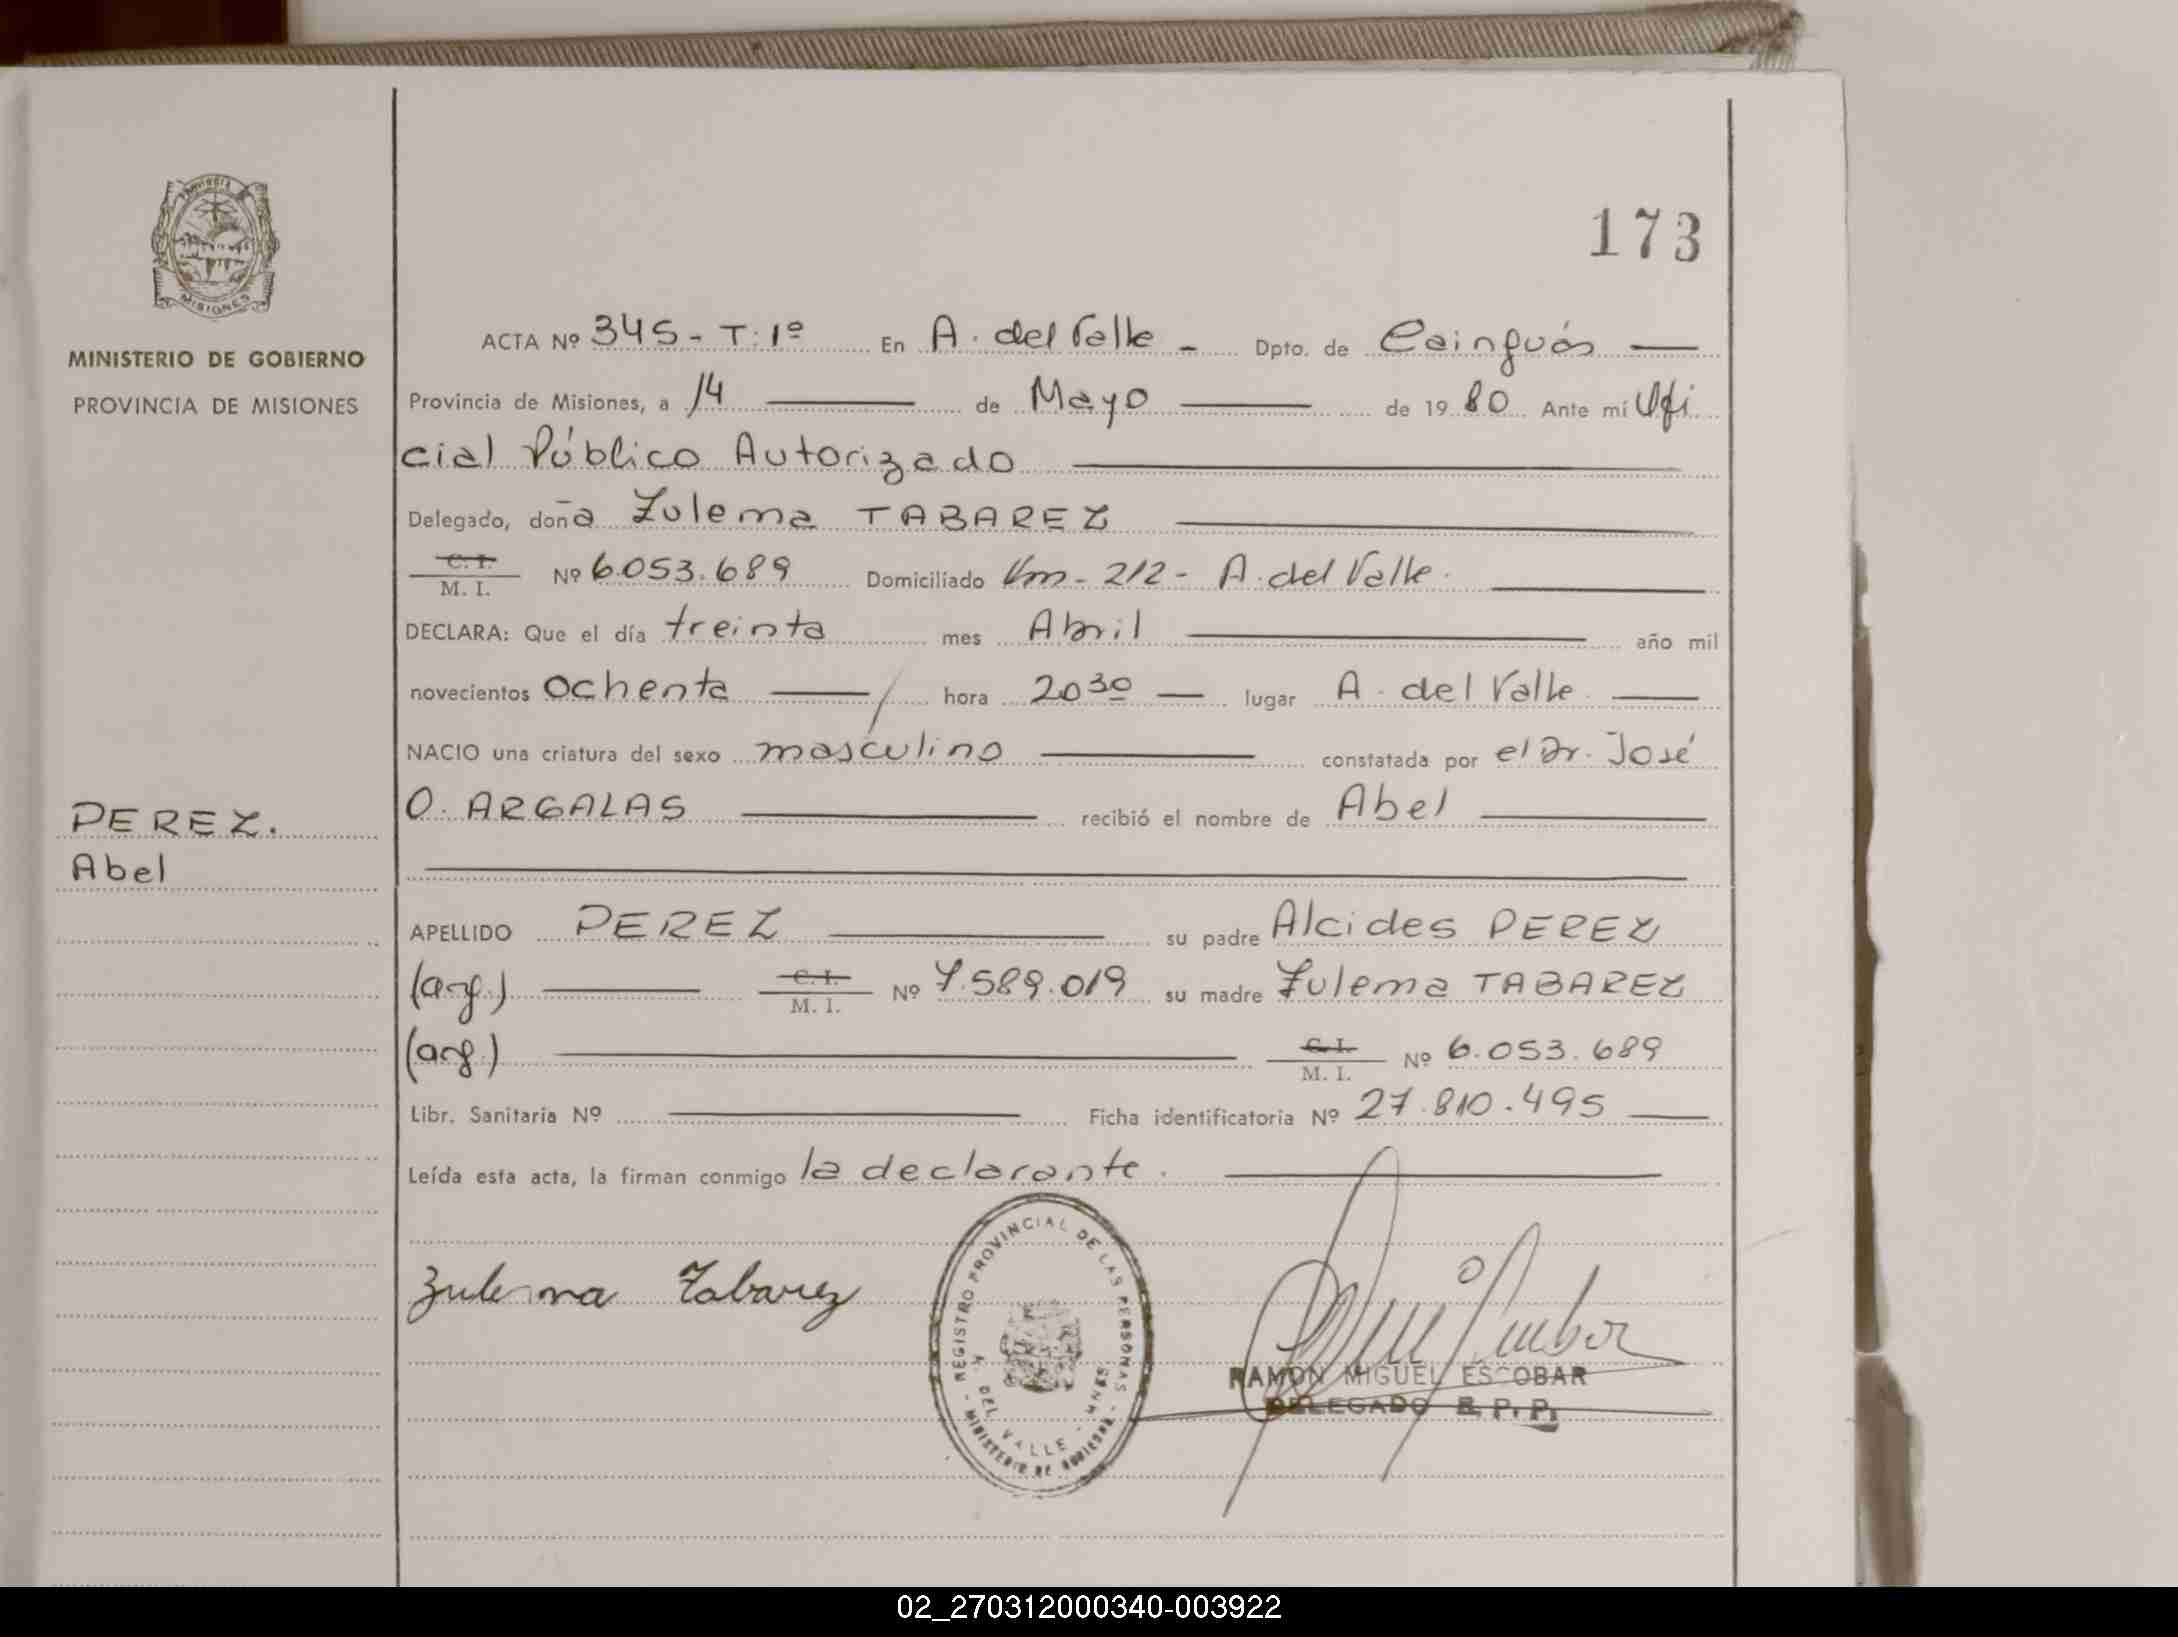 173
PROVINCIA
MISIONES
MINISTERIO DE GOBIERNO
PROVINCIA DE MISIONES
ACTA Nº 345 - T: 1º En A. del Valle - Dpto. de Cainguás
Provincia de Misiones, a 14 de Mayo de 19 80 Ante mí Ofi
cial Público Autorizado
Delegado, doña Zulema TABAREZ
C. I.
M. I. Nº 6.053.689 Domiciliado Km - 212 - A. del Valle.
DECLARA: Que el día treinta mes Abril año mil
novecientos ochenta hora 20 30 lugar A. del Valle.
NACIO una criatura del sexo masculino constatada por el Dr. José
O. ARGALAS recibió el nombre de Abel
PEREZ.
Abel
APELLIDO PEREZ su padre Alcides PEREZ
(arg.) C. I.
M. I. Nº 7.589.019 su madre Zulema TABAREZ
(arg.) C. I.
M. I. Nº 6.053.689
Libr. Sanitaria Nº Ficha identificatoria Nº 27.810.495
Leída esta acta, la firman conmigo la declarante.
Zulema Tabarez
REGISTRO PROVINCIAL DE LAS PERSONAS - MINISTERIO DE GOBIERNO -
A. DEL VALLE - MNES
RAMON MIGUEL ESCOBAR
DELEGADO R. P. P.
02_270312000340-003922